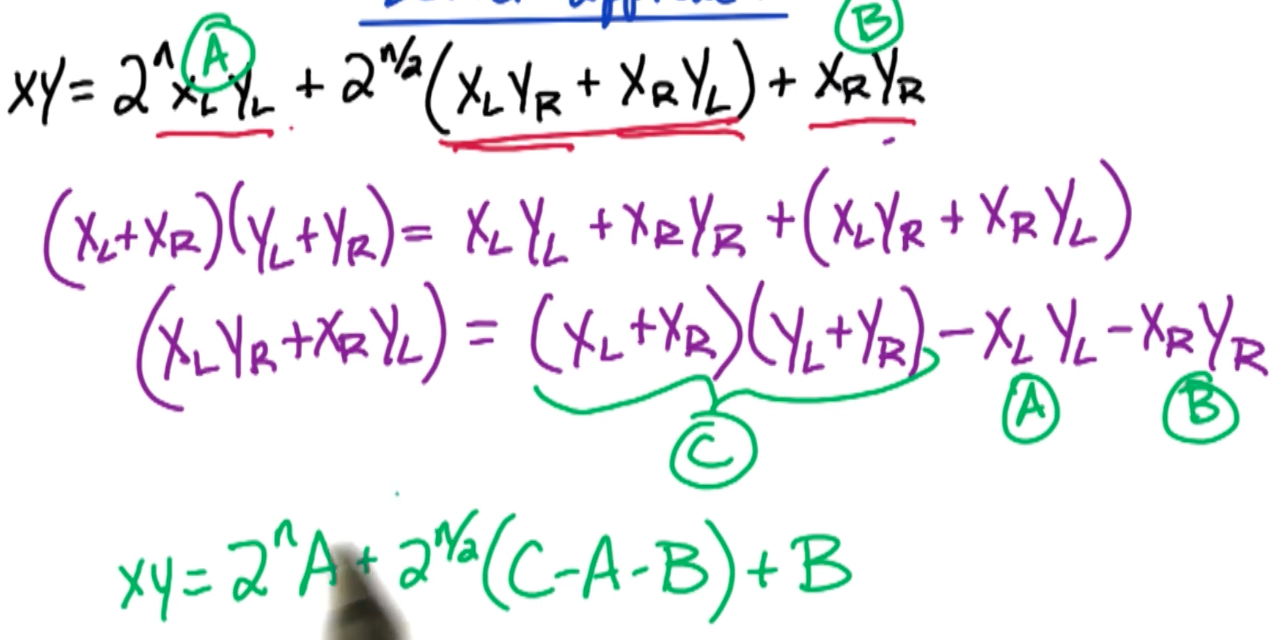 A B
xy = 2^n x_L y_L + 2^{n/2} (x_L y_R + x_R y_L) + x_R y_R
(x_L + x_R)(y_L + y_R) = x_L y_L + x_R y_R + (x_L y_R + x_R y_L)
(x_L y_R + x_R y_L) = (x_L + x_R)(y_L + y_R) - x_L y_L - x_R y_R
C A B
xy = 2^n A + 2^{n/2} (C - A - B) + B